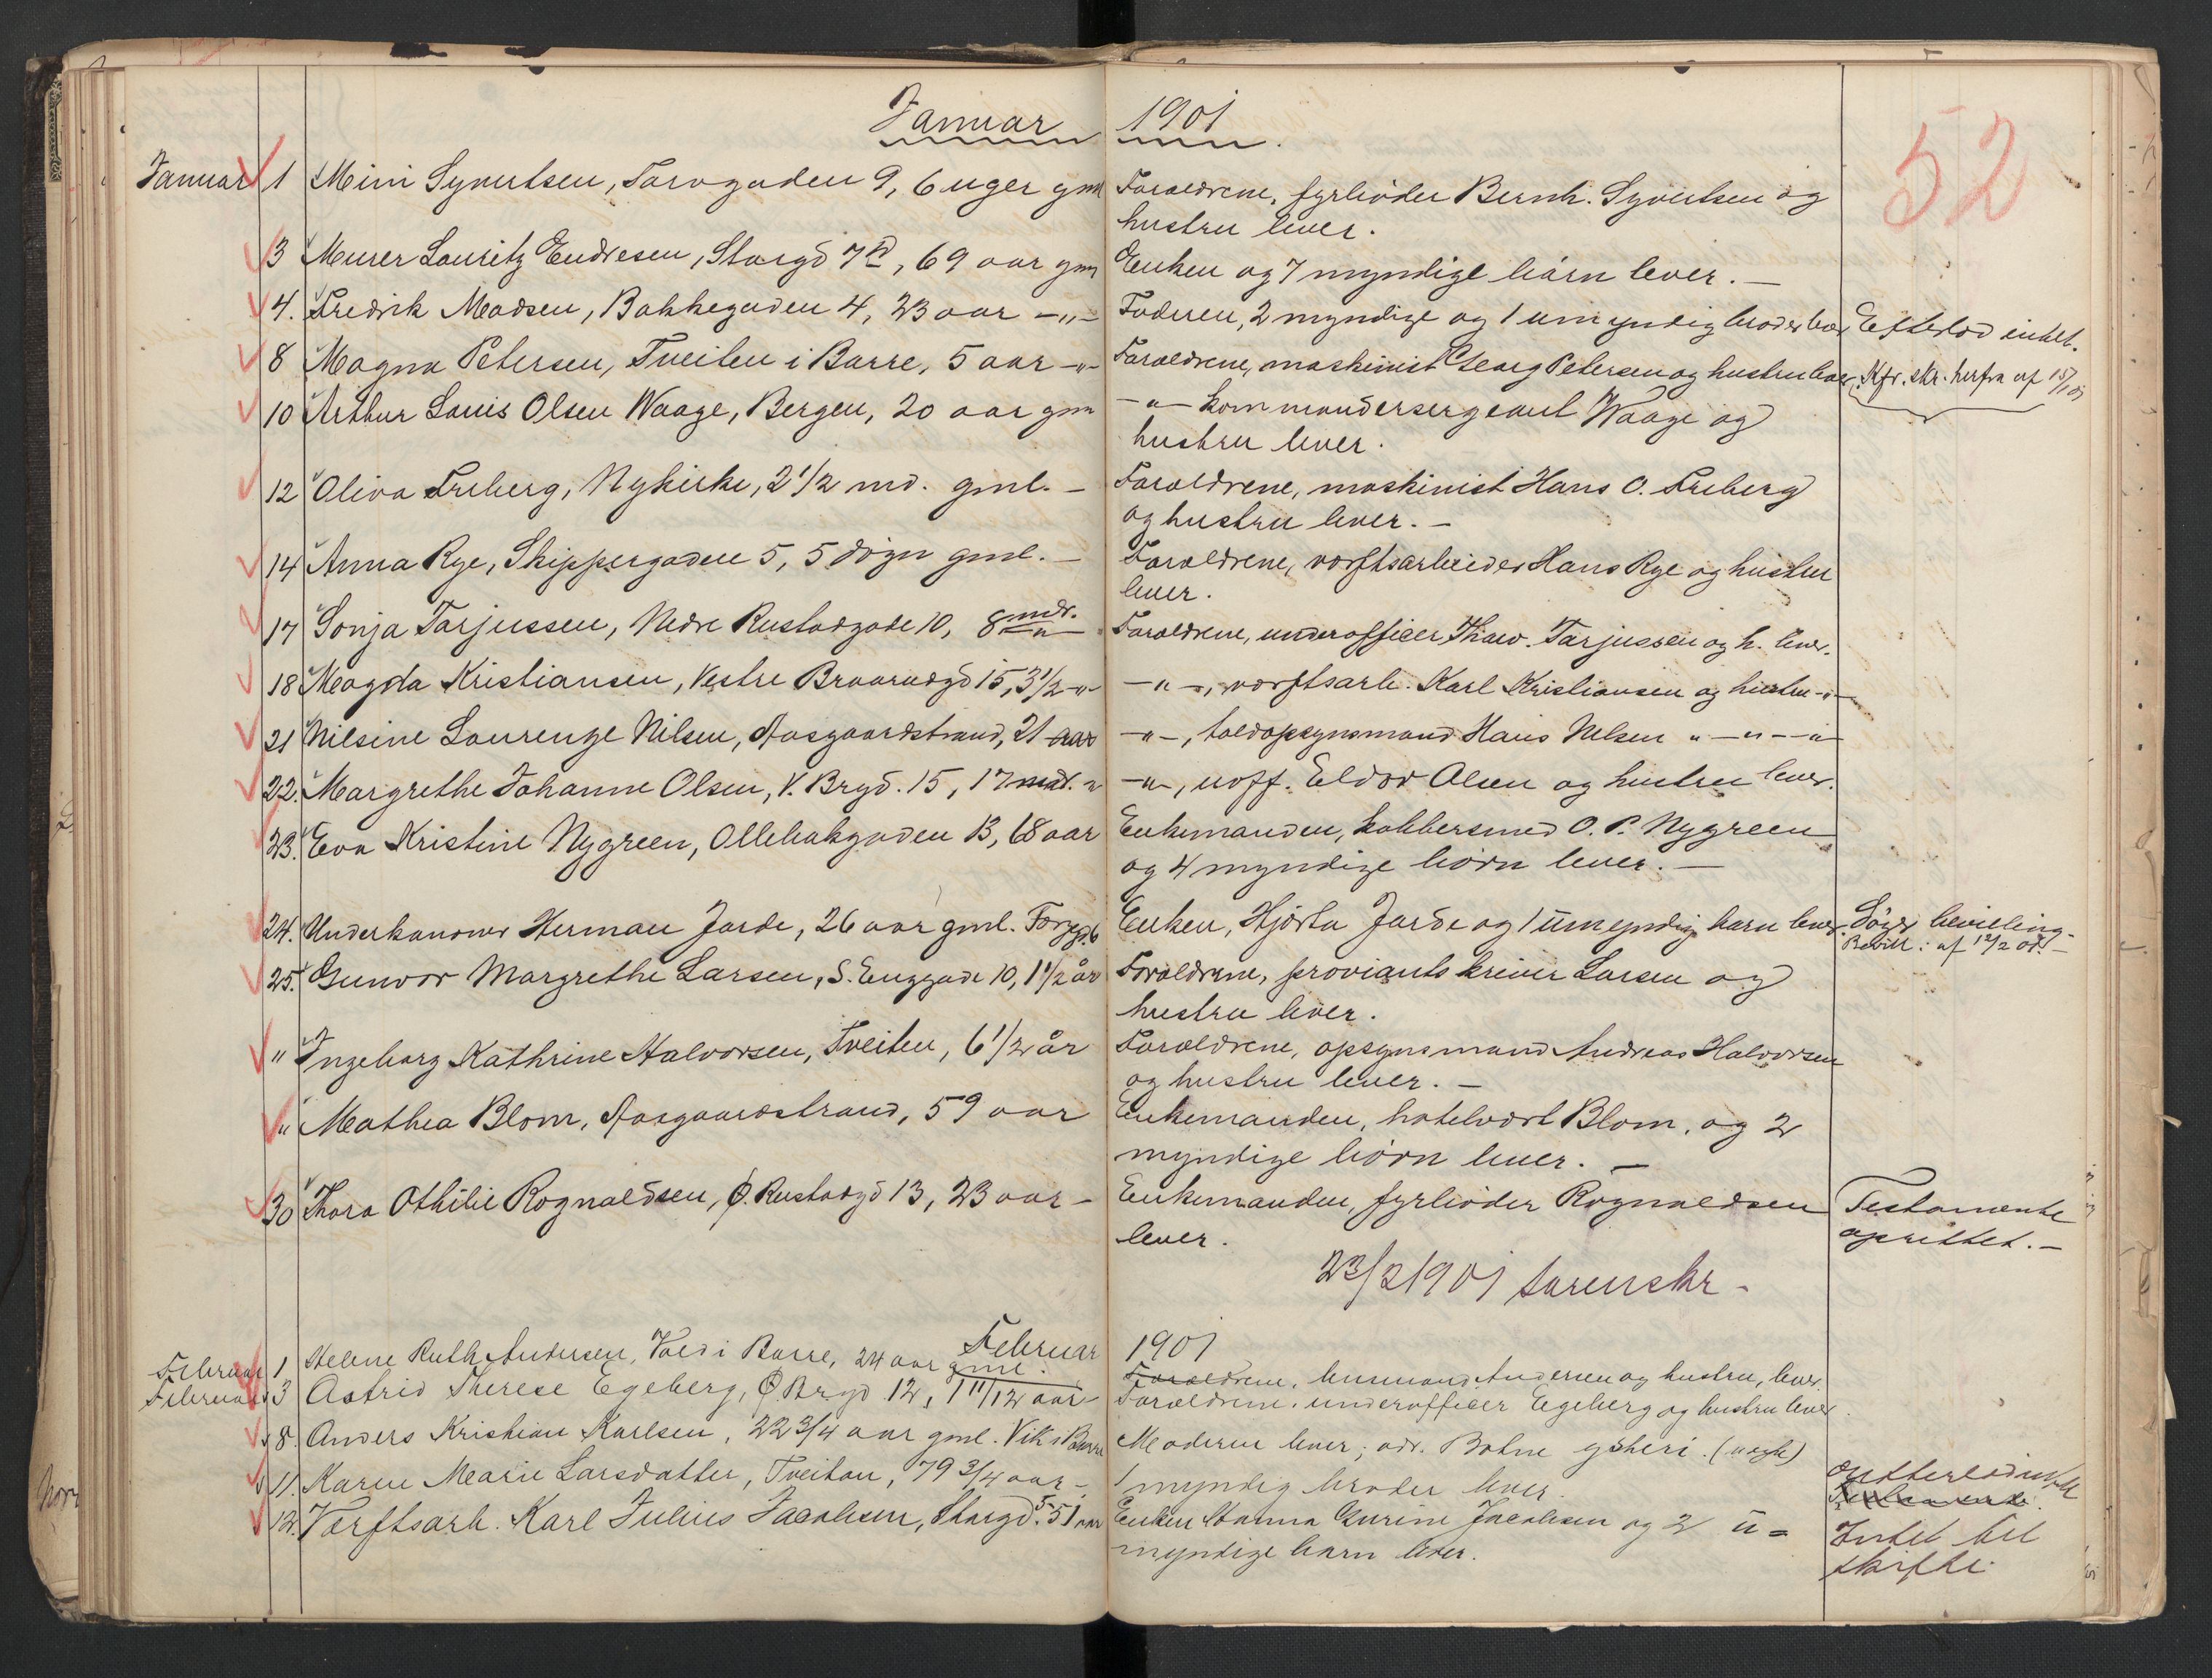 Januar 1901
52
Januar 1 Mimi Syvertsen, Torvgaden 9, 6 uger gml Forældrene, fyrbøder Bernh. Syvertsen og
hustru lever.
3 Murer Lauritz Endresen, Storgd 7 69 aar gml Enken og 7 myndige børn lever. —
4. Fredrik Madsen, Bakkegaden 4, 23 aar —„— Faderen, 2 myndige og 1 umyndig broder lever Efterlod intet.
8 Magna Petersen, Tveiten i Borre, 5 aar —„— Forældrene, maskinist Georg Petersen og hustru lever Kfr. skr. herfra af 15/1 01
10 Arthur Louis Olsen Waage, Bergen, 20 aar gml —„— kommandersergeant Waage og
hustru lever.
12 Oliva Freberg, Nykirke, 2 1/2 md. gml. — Forældrene, maskinist Hans O. Freberg
og hustru lever. —
14 Anna Rye, Skippergaden 5, 5 døgn gml. — Forældrene, værftsarbeider Hans Rye og hustru
lever.
17 Sonja Tarjussen, Nedre Rustadgade 10, 8 mdr. —„— Forældrene, underofficer Thorv. Tarjussen og h. lever.
18 Magda Kristiansen, Vestre Braaradgd 15, 3 1/2 —„— —„—, værftsarb. Karl Kristiansen og hustru —„—
21 Nilsine Laurenze Nilsen, Aasgaardstrand, 21 aar —„—, toldopsynsmand Hans Nilsen „ —„— —„—
22. Margrethe Johanne Olsen, V. Brgd. 15, 17 mdr. „ —„—, uoff. Eldor Olsen og hustru lever.
23. Eva Kristine Nygreen, Ollebakgaden 13, 68 aar Enkemanden, kobbersmed O. P. Nygreen
og 4 myndige børn lever. —
24. Underkanoner Herman Jarde, 26 aar gml. Torvgd. 6 Enken, Hjørta Jarde og 1 umyndig barn lever. Søger bevilling.
Bevill: af 12/2 01. —
25. Gunvor Margrethe Larsen, S. Enggade 10, 1 1/2 år Forældrene, proviantskriver Larsen og
hustru lever.
„ Ingeborg Kathrine Halvorsen, Tveiten, 6 1/2 år Forældrene, opsynsmand Andreas Halvorsen
og hustru lever. —
„ Mathea Blom, Aasgaardstrand, 59 aar Enkemanden, hotelvært Blom, og 2
myndige børn lever. —
30 Thora Othilie Rognaldsen, Ø. Rustadgd 13, 23 aar — Enkemanden, fyrbøder Rognaldsen Testamente
lever. oprettet. —
23/2 1901 sorenskr.
Februar 1901
Februar 1 Helene Ruth Andersen, Vold i Borre, 24 aar gml. Forældrene, Andersen og hustru, lever.
Februar 3 Astrid Therese Egeberg, Ø. Brgd 12, 1 11/12 aar — Forældrene, underofficer Egeberg og hustru lever.
8. Anders Kristian Karlsen, 22 3/4 aar gml. Vik i Borre Moderen lever; adr.
11. Karen Marie Larsdatter, Tveitan, 79 3/4 aar — 1 myndig broder lever.
12. Værftsarb. Karl Julius Jacobsen, Storgd. 5. 51 aar Enken Hanna Jacobsen og 2 u= Intet til
myndige barn lever. skifte.